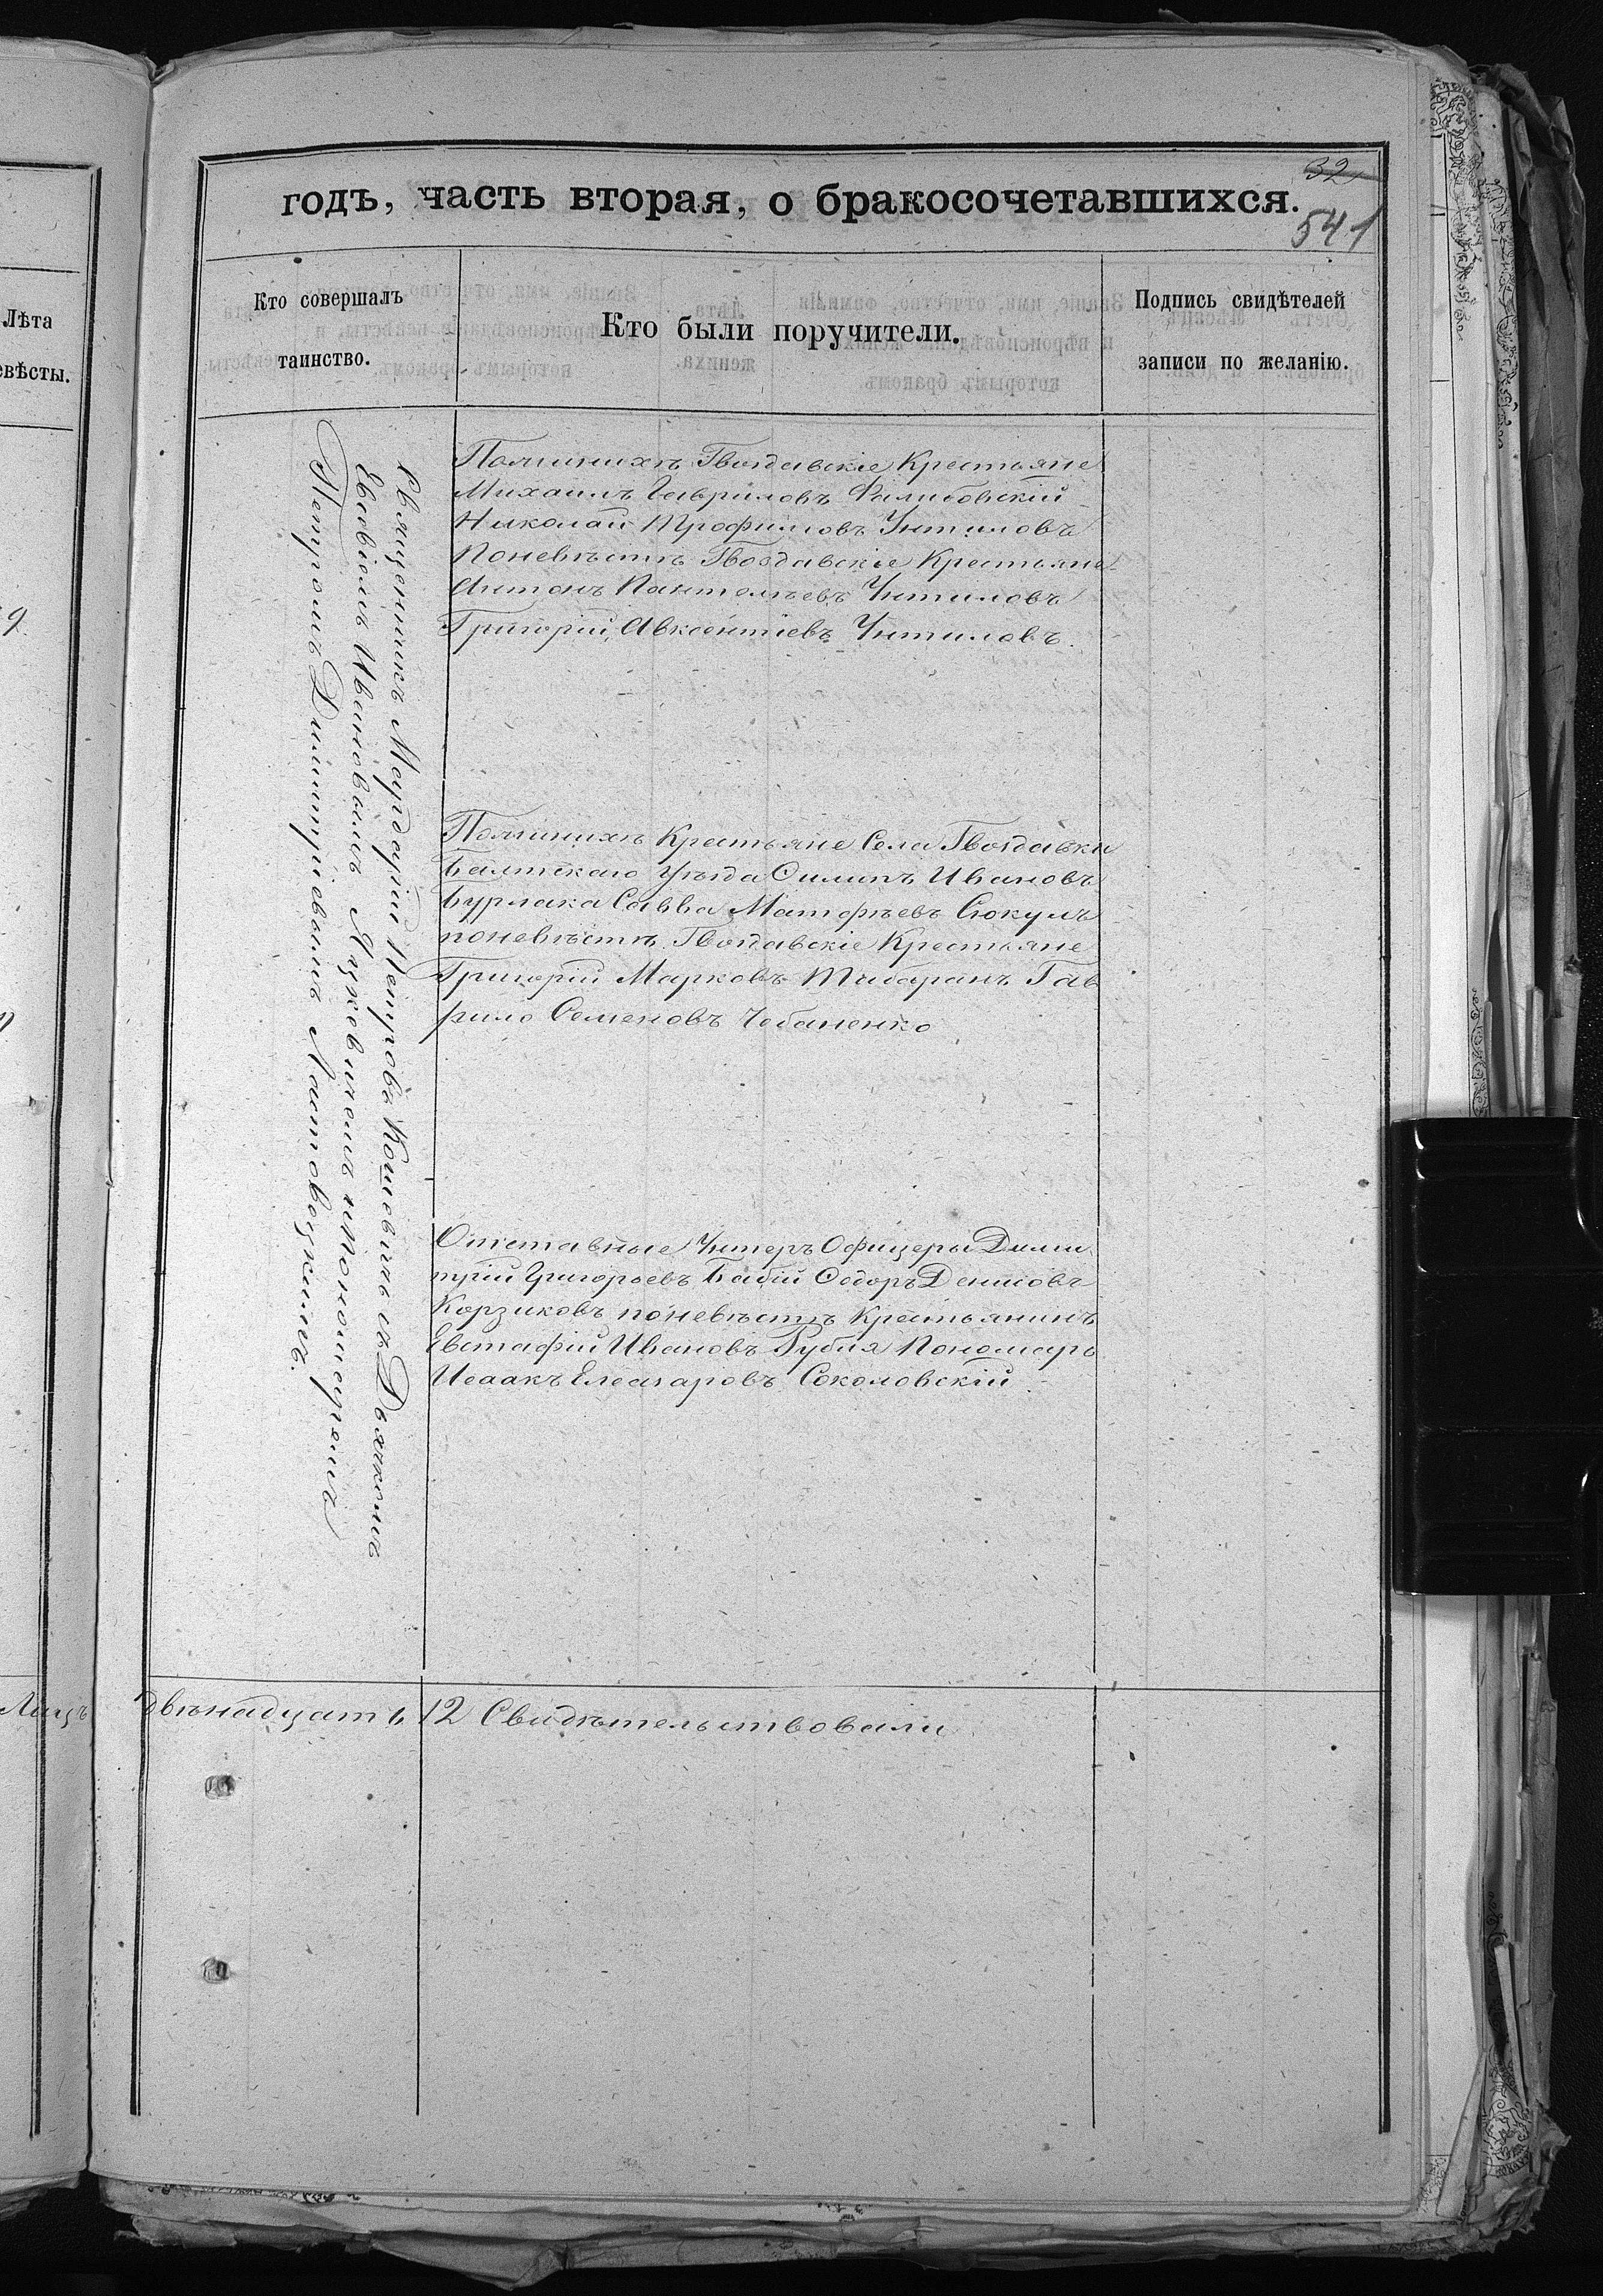 32
годъ, часть вторая, о бракосочетавшихся.
541
Лѣта
евѣсты.
Кто совершалъ
таинство.
Кто были поручители.
Подпись свидѣтелей
записи по желанію.
Священникъ Мардарій Петровъ Кошовичъ съ Дьякомъ
Евѳиміемъ Ивановымъ Яцковичемъ и Пономаремъ
Петромъ Димитріевымъ Ластовецкимъ.
По женихѣ Гвоздавскіе Крестьяне
Михаилъ Гавриловъ Фалибовскій
Николай Трофимовъ Унтиловъ
По невѣстѣ Гвоздавскіе Крестьяне
Антонъ Пантелѣевъ Унтиловъ
Григорій Авксентіевъ Унтиловъ.
По женихѣ Крестьяне Села Гвоздавки
Балтскаго Уѣзда Симонъ Ивановъ
Бурлака Савва Матфѣевъ Сокулъ
по невѣстѣ Гвоздавскіе Крестьяне
Григорій Марковъ Табаранъ Гав
рило Семеновъ Чебаненко
Отставные Унтеръ Офицеры Дими
трій Григорьевъ Бабій Ѳедоръ Денисовъ
Корзиковъ по невѣстѣ Крестьянинъ
Евстафій Ивановъ Рубля Пономарь
Исаакъ Елеазаровъ Соколовскій
Лицъ двѣнадцать 12 Свидѣтельствовали